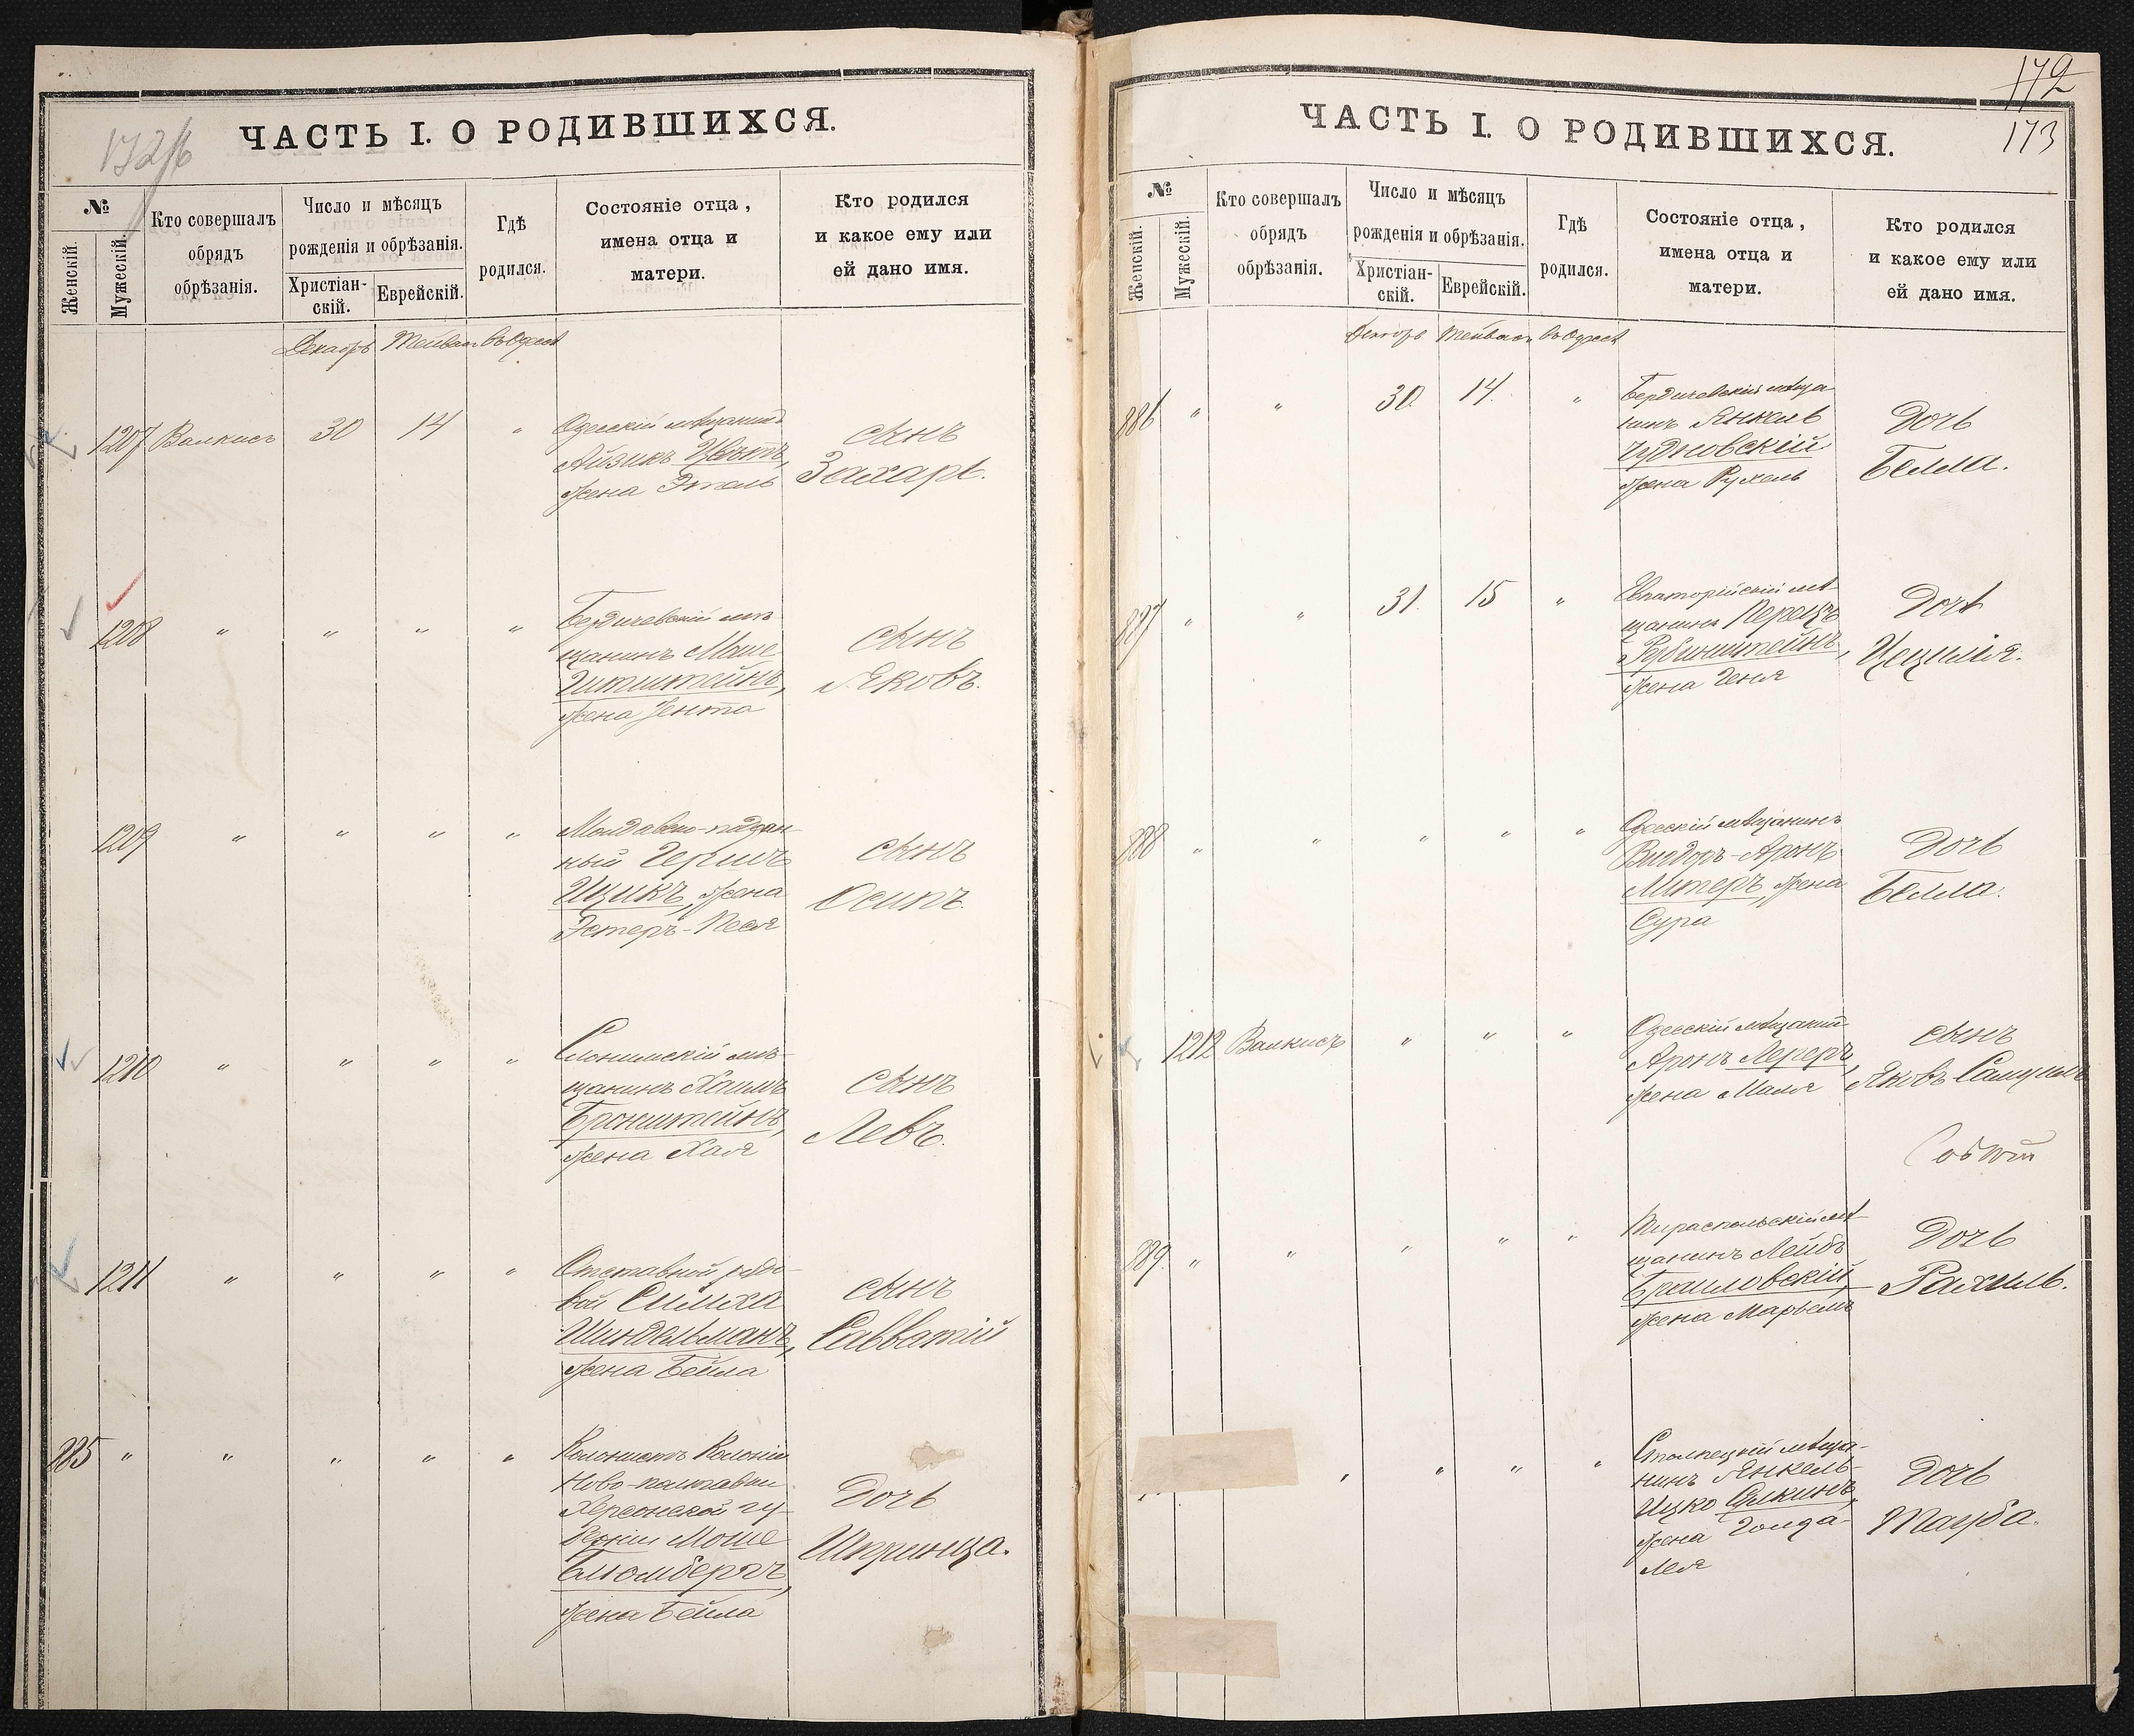 172/б
ЧАСТЬ I. О РОДИВШИХСЯ.
№
Женскій.
Мужескій.
Кто совершалъ
обрядъ
обрѣзанія.
Число и мѣсяцъ
рожденія и обрѣзанія.
Христіан-
скій.
Еврейскій.
Гдѣ
родился.
Состояніе отца,
имена отца и
матери.
Кто родился
и какое ему или
ей дано имя.
Декабрь Тейвасъ въ Одессѣ
1207 Валкисъ 30 14 "
Одесскій мѣщанинъ
Айзикъ Цвѣтъ,
жена Этель
сынъ
Захаръ.
1208 " " " "
Бердичевскій мѣ-
щанинъ Моше
жена Ента
сынъ
Яковъ.
1209 " " " "
Молдавско-поддан-
ный Гершъ
Ицикъ, жена
Эстеръ-Песя
сынъ
Осипъ.
1210 " " " "
Слонимскій мѣ-
щанинъ Хаимъ
Бронштейнъ,
жена Хая
сынъ
Левъ.
1211 " " " "
Отставной рядо-
вой Симха
Шиндельманъ,
жена Бейла
сынъ
Савватій
885 " " " " " "
Колонистъ Колоніи
Ново-полтавки
Херсонской гу-
берніи Моше
Блюмбергъ,
жена Бейла
Дочь
Шпринца.
172
173
ЧАСТЬ I. О РОДИВШИХСЯ.
№
Женскій.
Мужескій.
Кто совершалъ
обрядъ
обрѣзанія.
Число и мѣсяцъ
рожденія и обрѣзанія.
Христіан-
скій.
Еврейскій.
Гдѣ
родился.
Состояніе отца,
имена отца и
матери.
Кто родился
и какое ему или
ей дано имя.
Декабрь Тейвасъ въ Одессѣ
886 " " 30. 14. "
Бердичевскій мѣща-
нинъ Янкель
Чудновскій
жена Рухель
Дочь
Белла.
887 " " 31. 15 "
Евпаторійскій мѣ-
щанинъ Перецъ
Рубинштейнъ,
жена Геня
Дочь
Цецилія.
888 " " " " "
Одесскій мѣщанинъ
Вигдоръ-Аронъ
Литеръ, жена
Сура
Дочь
Белла.
1212 Валкисъ " " "
Одесскій мѣщанинъ
Аронъ Лереръ,
жена Маля
сынъ
Яковъ Самуилъ
889. " " " " "
Тираспольскій мѣ-
щанинъ Лейбъ
Браиловскій,
жена Марьемъ
Дочь
Рахиль.
" " " "
Столпецкій мѣща-
нинъ Янкель-
Ицко
жена Голда-
Лея
Дочь
Тауба.